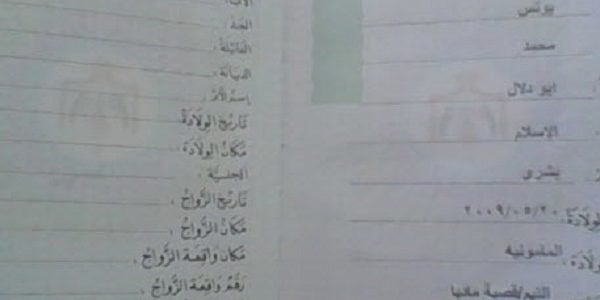 يونس
محمد
ابو دلال
الاسلام
بشرى
الولادة ٢٠٠٩/٠٥/٢٠
الولادة
الأب :
الجد :
العائلة :
الديانة :
إسم الأم :
تاريخ الولادة :
مكان الولادة :
الجنسية :
تاريخ الزواج :
مكان الزواج :
مكان واقعة الزواج :
رقم واقعة الزواج :